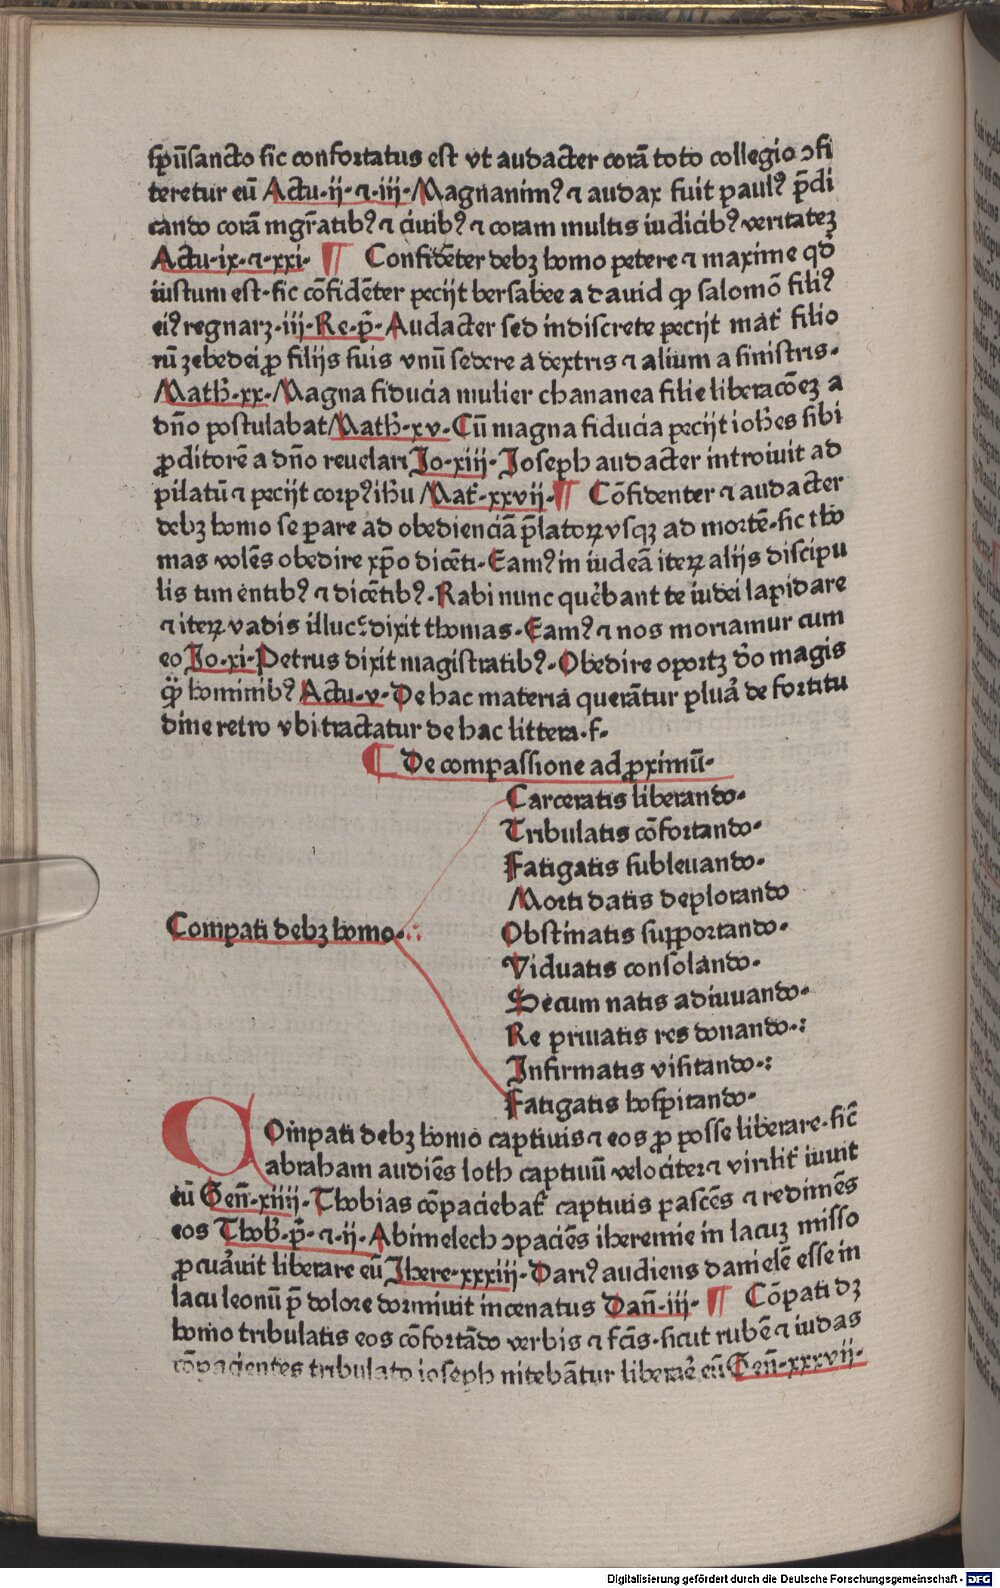 sp̄usancto sic confortatus est vt audacter corā toto collegio ↄfi
teretur eū Actu·ii·⁊·iii· Magnanimꝰ ⁊ audax fuit paulꝰ p̄di
cando corā mgr̄atibꝰ ⁊ ciuibꝰ ⁊ coram multis iudicibꝰ veritateꝫ
Actu·ix·⁊·xxi· ¶ Confidēter debꝫ homo petere ⁊ maxime qd̄
iustum est·sic cōfidēter peciit bersabee a dauid ꝙ salomō filiꝰ
eiꝰ regnarꝫ·iij·Re·p̄· Audacter sed indiscrete peciit mat̄ filio
rū zebedei ꝓ filijs suis vnū sedere a dextris ⁊ alium a sinistris·
Math̄·xx· Magna fiducia mulier chananea filie liberacōeꝫ a
dn̄o postulabat Math̄·xv· Cū magna fiducia peciit ioh̄es sibi
ꝓditorē a dn̄o reuelari Jo·xiij· Joseph audacter introiuit ad
pilatū ⁊ peciit corpꝰ ih̄u Mat̄·xxvij· ¶ Cōfidenter ⁊ audacter
debꝫ homo se pare ad obedienciā p̄latoꝝ vsqꝫ ad mortē·sic tho
mas volēs obedire xp̄o dicēti· Eamꝰ in iudeā iteꝝ alijs discipu
lis timentibꝰ ⁊ dicētibꝰ· Rabi nunc quērbant te iudei lapidare
⁊ iteꝝ vadis illuc·dixit thomas· Eamꝰ ⁊ nos moriamur cum
eo Jo·xi· Petrus dixit magistratibꝰ· Obedire oportꝫ dō magis
q̄ꝫ hominibꝰ Actu·v· De hac materia querātur plura de fortitu
dine retro vbi tractatur de hac littera·f·
¶ De compassione ad ꝓximū·
Carceratis liberando·
Tribulatis cōfortando·
Fatigatis subleuando·
Morti datis deplorando
Compati debꝫ homo·
Obstinatis supportando·
Viduatis consolando·
Secum natis adiuuando·
Re priuatis res donando·:
Infirmatis visitando·:
Fatigatis hospitando·
Compati debꝫ homo captiuis ⁊ eos ꝓ posse liberare·sic̄
abraham audiēs loth captiuū velociter ⁊ virilit̄ iuuit
eū Gen̄·xiiij· Thobias cōpaciebat̄ captiuis pascēs ⁊ redimēs
eos Thob̄·p̄·⁊·ij· Abimelech ↄpaciēs iheremie in lacuꝫ misso
ꝓcurauit liberare eū Jhere·xxxiij· Dariꝰ audiens danielē esse in
lacu leonū p̄ dolore dormiuit incenatus Dan̄·iij· ¶ Cōpati dꝫ
homo tribulatis eos cōfortādo verbis ⁊ fc̄is·sicut rubē ⁊ iudas
cōpacientes tribulato ioseph nitebātur liberare eū Gen̄·xxxvij·
Digitalisierung gefördert durch die Deutsche Forschungsgemeinschaft - DFG